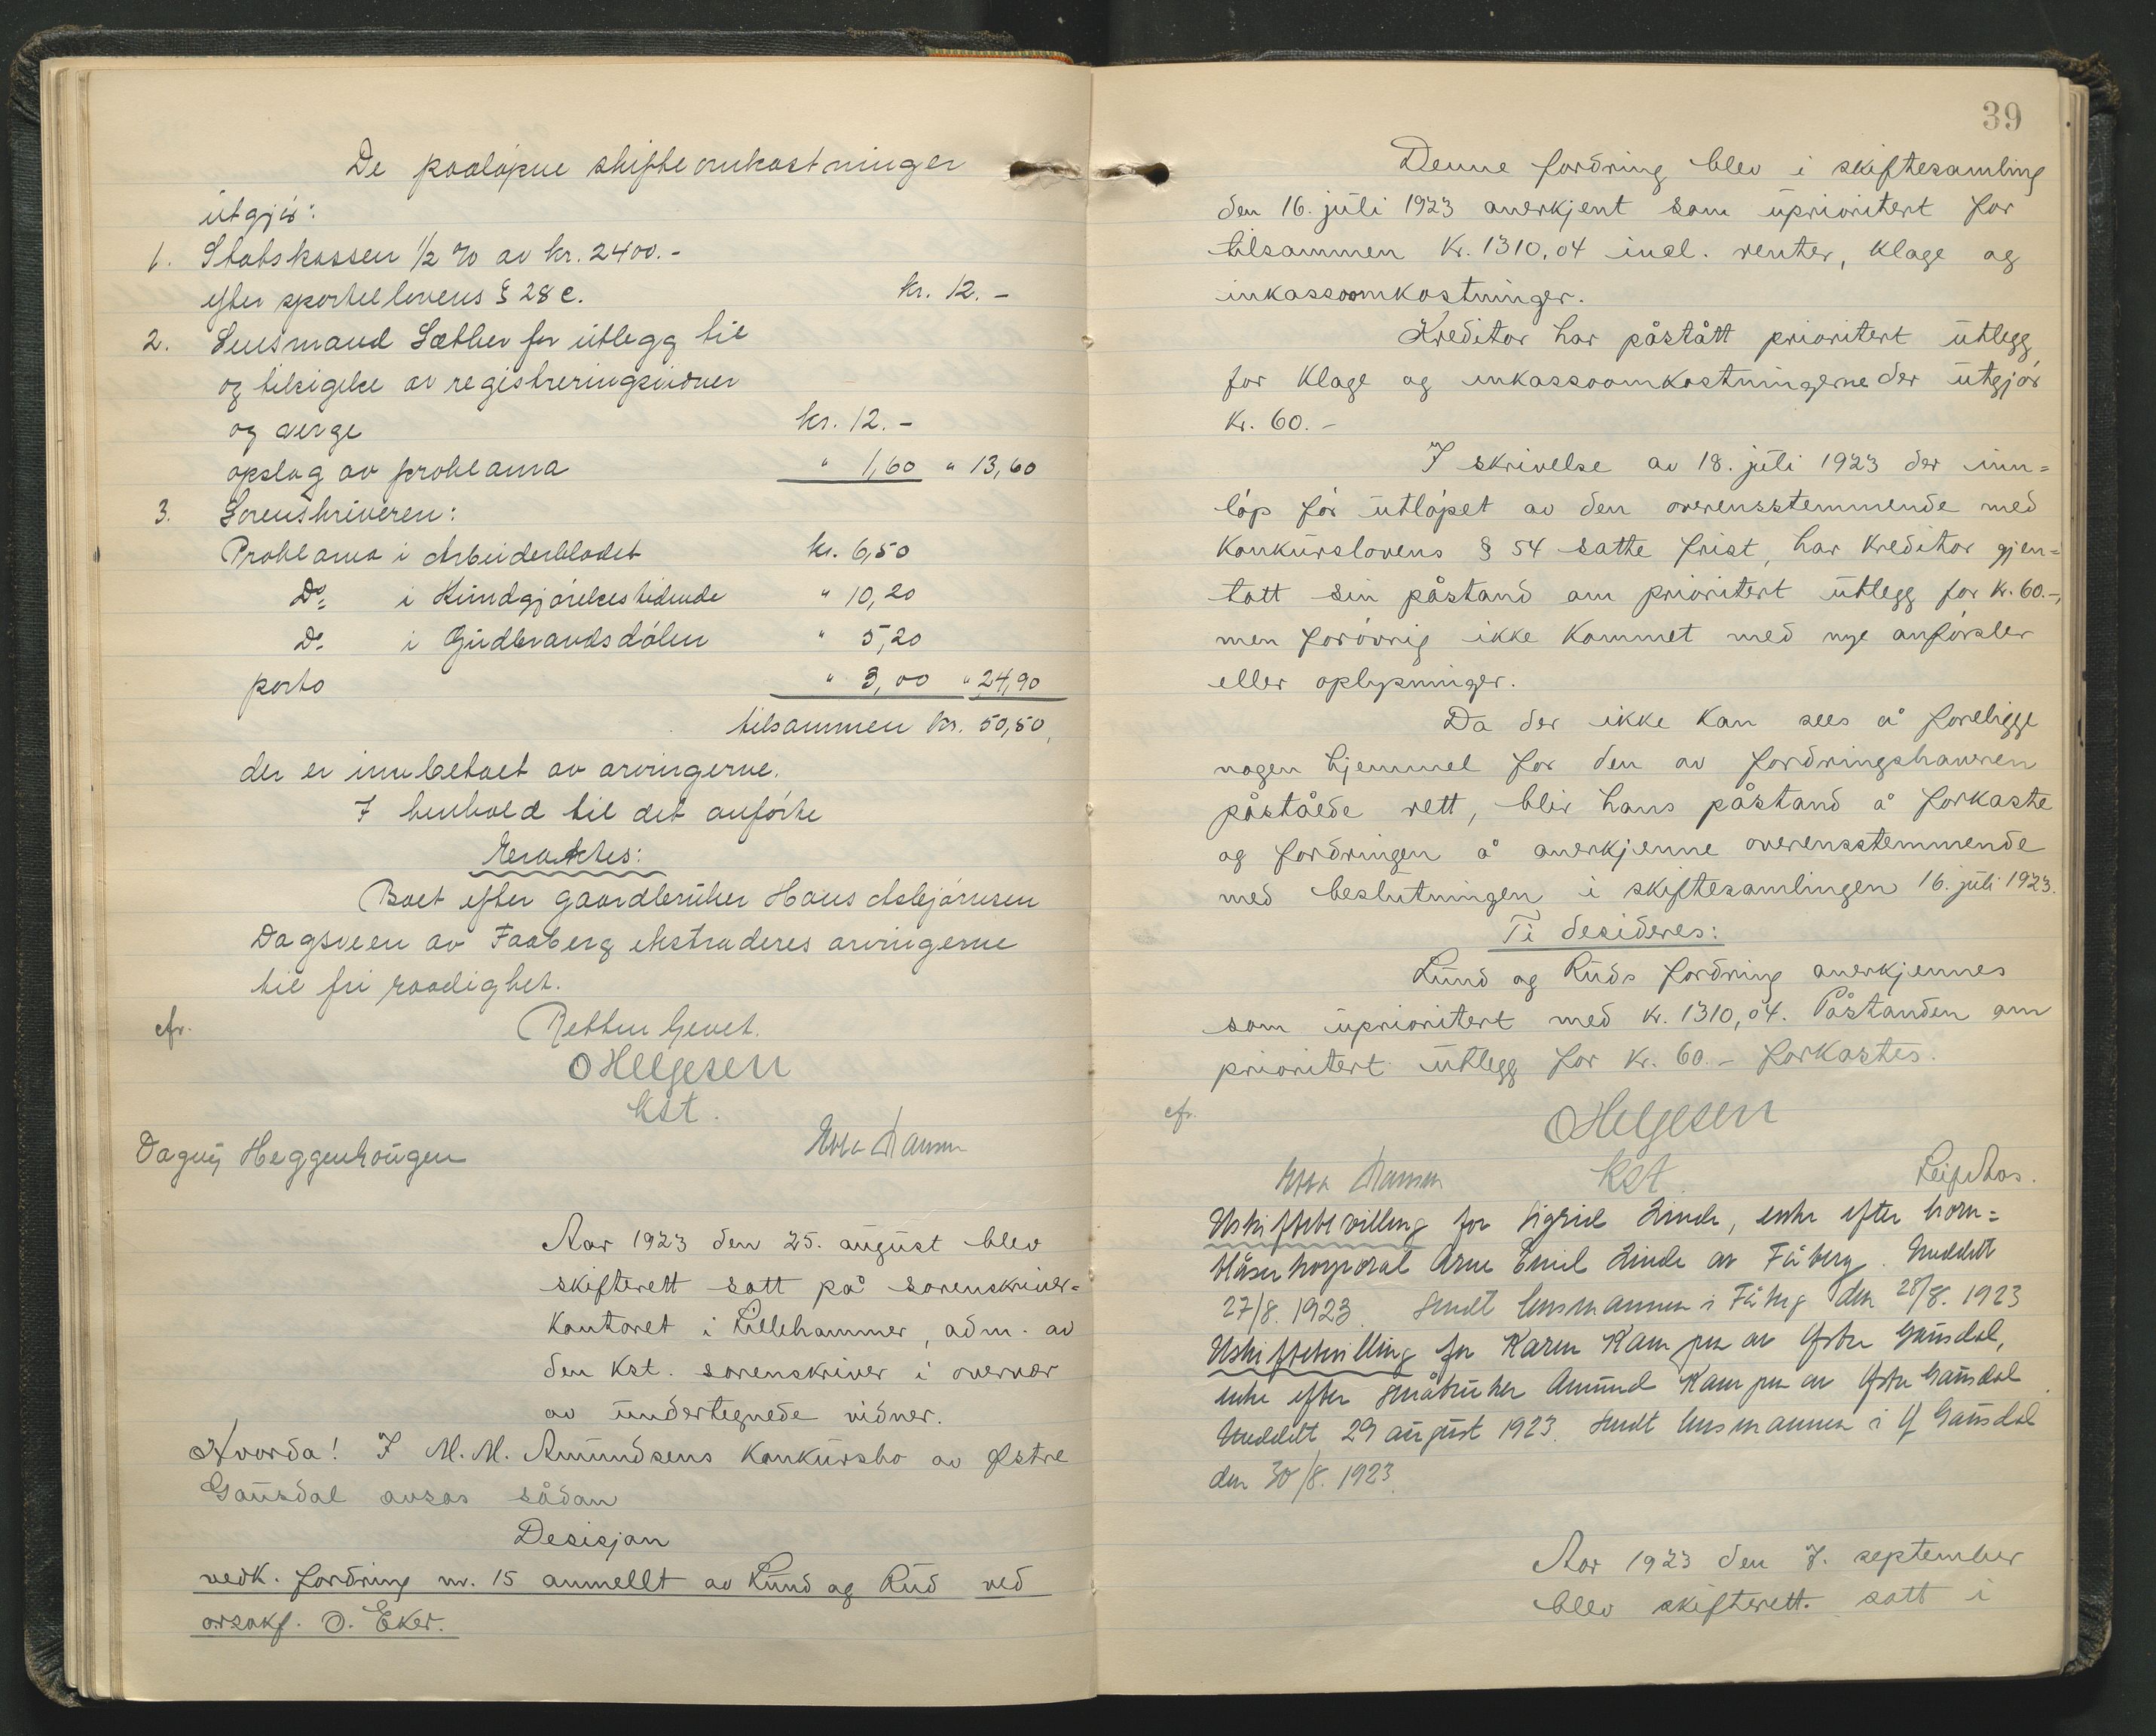 De paaløpne skifteomkostninger
utgjør:
1. Statskassen 1/2 % av kr. 2400.-
efter sportellovens § 28 c. kr. 12.-
2. Lensmand Sæther for utlegg til
og tilsigelse av registreringsvidner
og verge kr. 12.-
opslag av proklama " 1,60 " 13,60
3. Sorenskriveren:
Proklama i Arbeiderbladet kr. 6,50
Do. i Kundgjørelsestidende " 10,20
Do. i Gudbrandsdølen " 5,20
porto " 3,00 " 24,90
tilsammen kr. 50,50,
der er innbetalt av arvingerne.
I henhold til det anførte
Eraktes:
Boet efter gaardbruker Hans Asbjørnsen
Dagsveen av Faaberg ekstraderes arvingerne
til fri raadighet.
cfr. Retten hevet.
O Helgesen
kst.
Dagny Heggenhougen Ebba Hansen
Aar 1923 den 25. august blev
skifterett satt på sorenskriver-
kontoret i Lillehammer, adm. av
den kst. sorenskriver i overvær
av undertegnede vidner.
Hvorda! I M. M. Amundsens konkursbo av Østre
Gausdal avsas sådan
Desisjon
vedk. fordring nr. 15 anmellt av Lund og Rud ved
o.r.sakf. O. Eker.
39
Denne fordring blev i skiftesamling
den 16. juli 1923 anerkjent som uprioritert for
tilsammen kr. 1310,04 incl. renter, klage og
inkassoomkostninger.
Kreditor har påstått prioritert utlegg
for klage og inkassoomkostningerne der utgjør
kr. 60.-
I skrivelse av 18. juli 1923 der inn=
løp før utløpet av den overensstemmende med
konkurslovens § 54 satte frist, har kreditor gjen=
tatt sin påstand om prioritert utlegg for kr. 60.-,
men forøvrig ikke kommet med nye anførsler
eller oplysninger.
Da der ikke kan sees å foreligge
nogen hjemmel for den av fordringshaveren
påståede rett, blir hans påstand å forkaste
og fordringen å anerkjenne overensstemmende
med beslutningen i skiftesamlingen 16. juli 1923.
Ti desideres:
Lund og Ruds fordring anerkjennes
som uprioritert med kr. 1310,04. Påstanden om
prioritert utlegg for kr. 60.- forkastes.
cfr. O Helgesen
Ebba Hansen kst. Leif Aas.
Uskiftebevilling for Sigrid Linde, enke efter horn=
blåserkorporal Arne Emil Linde av Fåberg. Uteddelt
27/8. 1923. Sendt lensmannen i Fåberg den 28/8. 1923
Uskiftebevilling for Karen Kampen av Østre Gausdal,
enke efter småbruker Amund Kampen av Østre Gausdal.
Uteddelt 29 august 1923. Sendt lensmannen i Ø Gausdal
den 30/8. 1923.
Aar 1923 den 7. september
blev skifterett. satt i